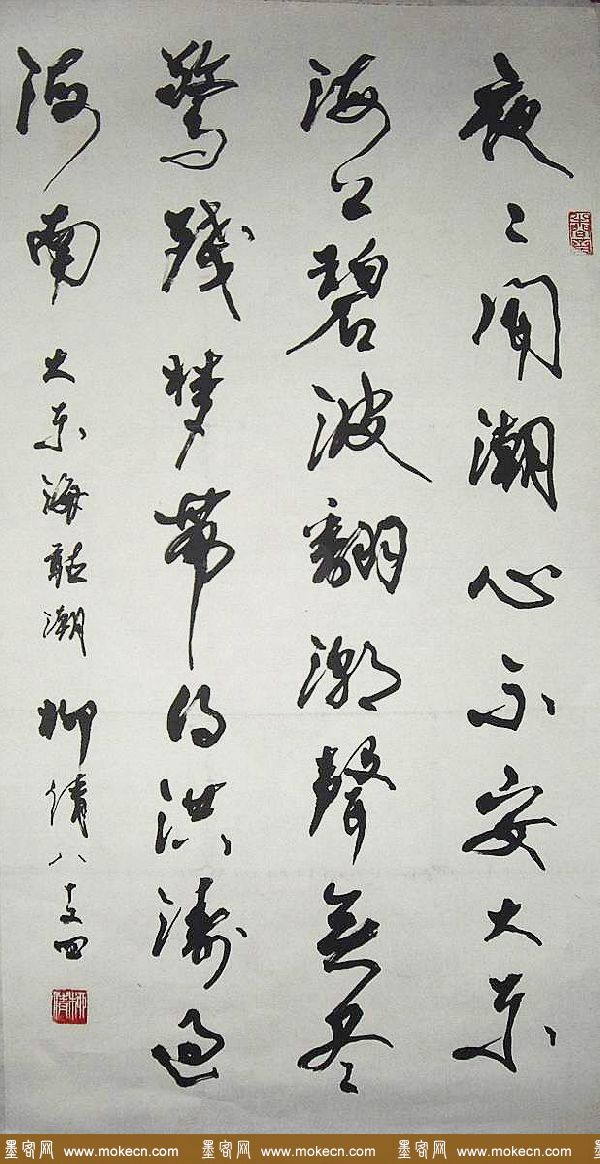 夜〻闻潮心不安大东
海上碧波翻潮聲無尽
驚殘梦帶得洪濤過
海南 大东海聽潮 柳倩八十又四
柳倩
墨客网 www.mokecn.com 墨客网 www.mokecn.com 墨客网 www.mokecn.com